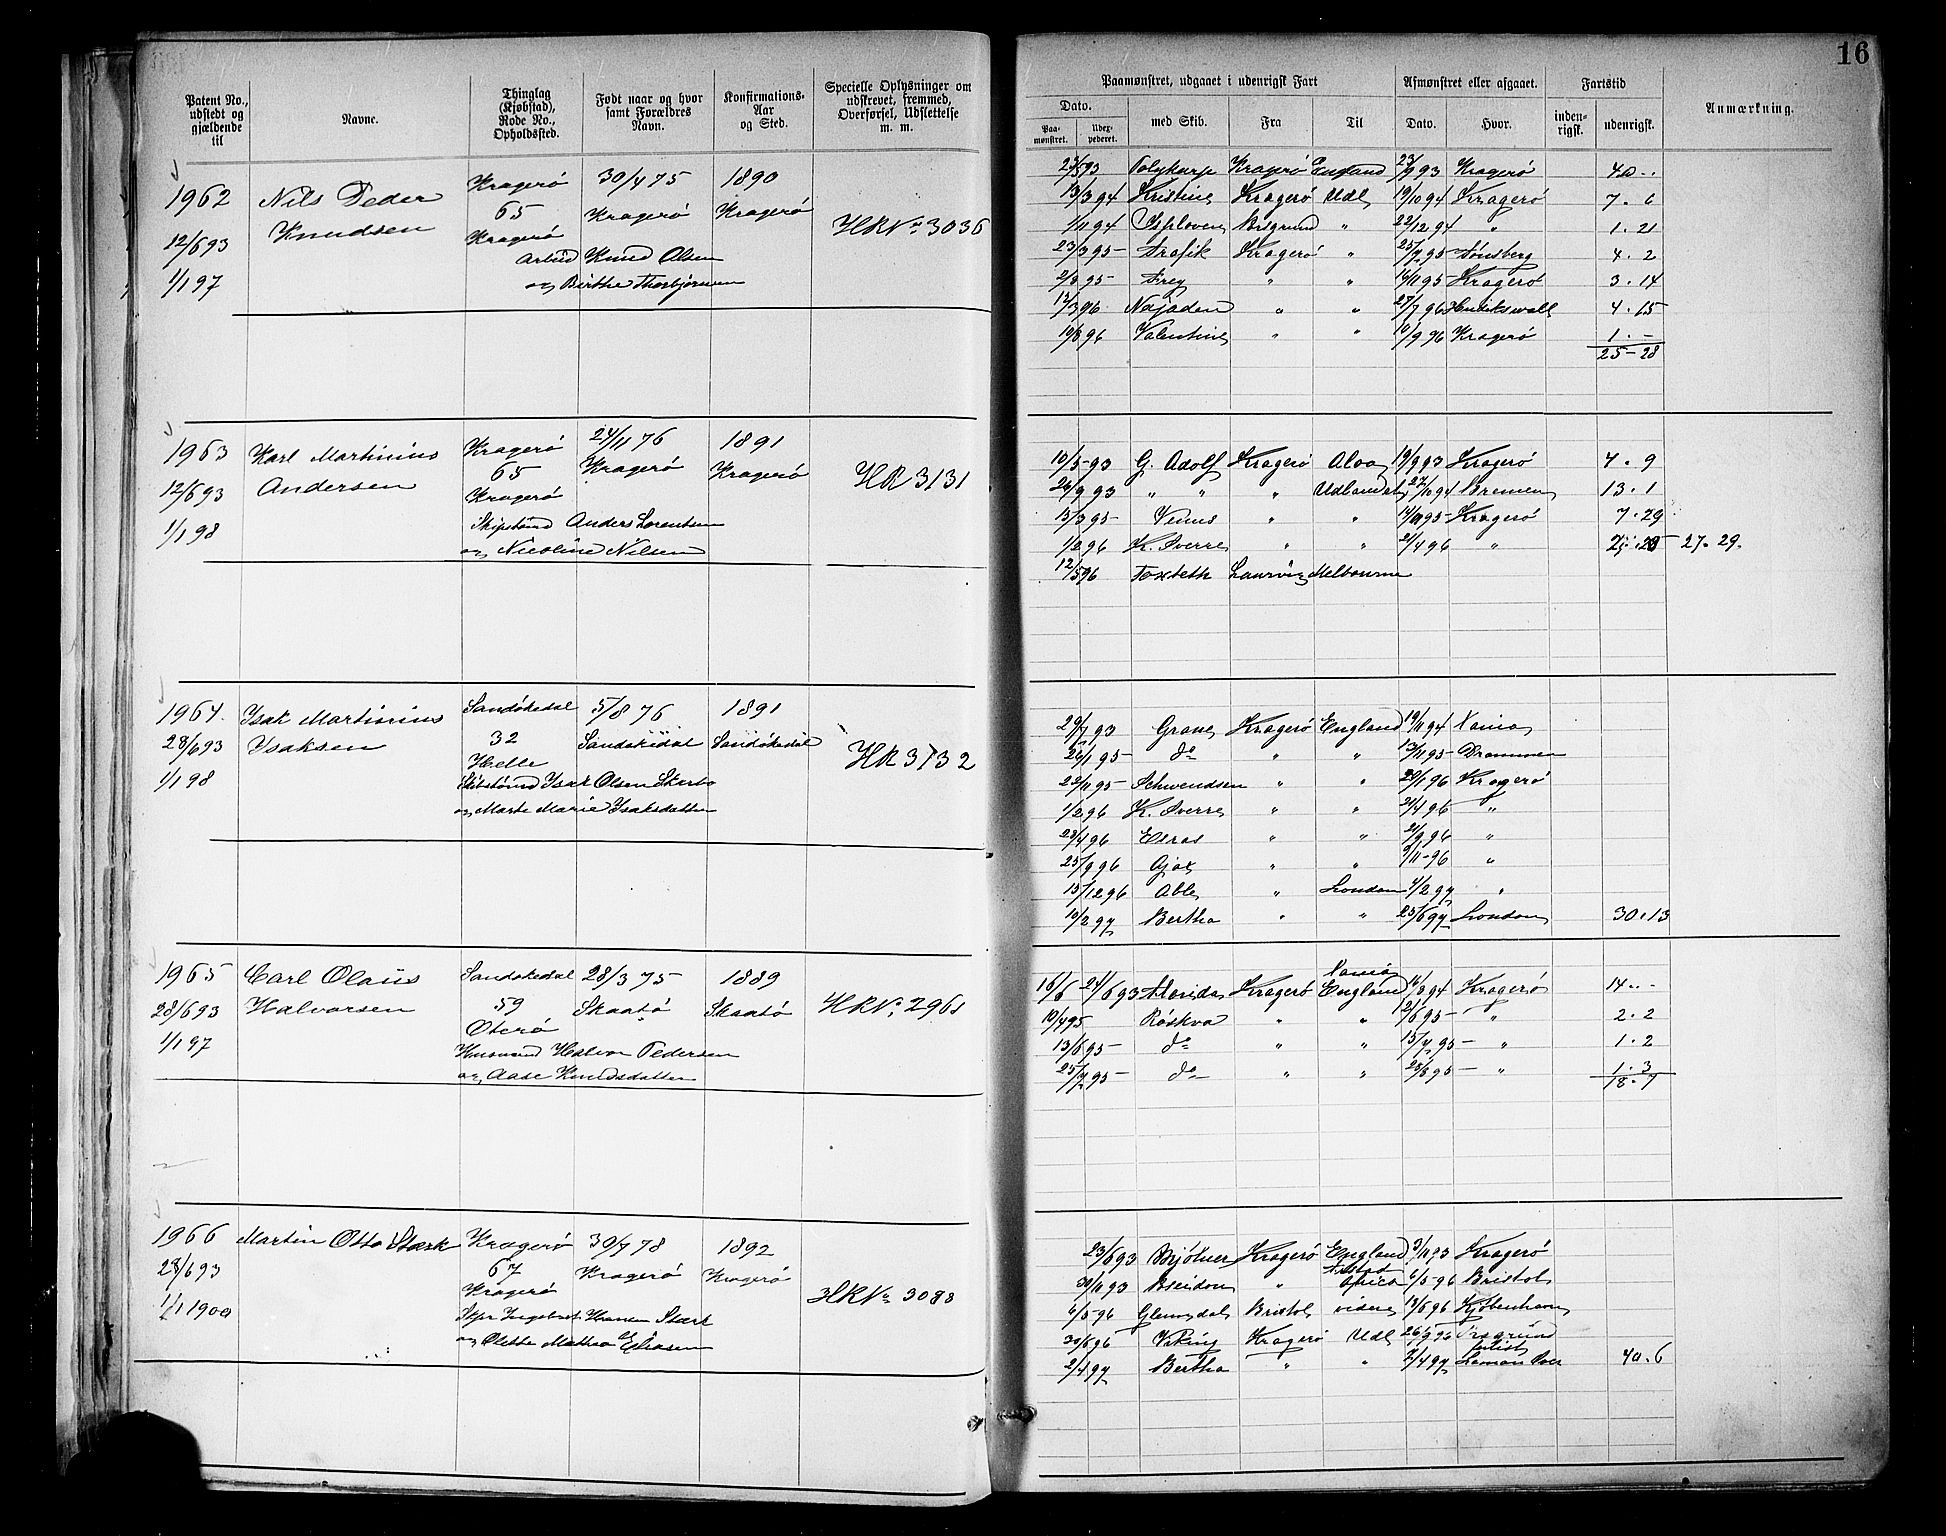 16
Patent No., udstedt og gjældende til
Navne.
Thinglag (Kjøbstad), Rode No., Opholdssted.
Født naar og hvor samt Forældres Navn.
Konfirmations-Aar og Sted.
Specielle Oplysninger om udskrevet, fremmed, Overførsel, Udslettelse m. m.
Paamønstret, udgaaet i udenrigsk Fart
Afmønstret eller afgaaet.
Fartstid
Anmærkning.
Dato.
Paamønstret. Udexpederet. med Skib. Fra Til Dato. Hvor. indenrigsk. udenrigsk.
1962 Nils Peder Kragerø 30/4 75 1890
Knudsen 65 Kragerø Kragerø HRNo 3036
12/6 93 Kragerø
Arbm Knud Olsen
1/1 97 og Birthe Thorbjørnsen
23/5 93 Polykarp Kragerø England 23/9 93 Kragerø 4 0 - -
13/3 94 Kristine Kragerø Udl 19/10 94 Kragerø 7 - 6
1/11 94 " 22/12 94 " 1 - 21
23/3 95 Trafik Kragerø " 25/7 95 Tønsberg 4 - 2
2/8 95 Frey " " 16/11 95 Kragerø 3 - 14
12/3 96 Najaden " " 27/7 96 4 - 15
10/8 96 Valentine " " 10/9 96 Kragerø 1 - -
25 - 28
1963 Karl Martinius Kragerø 24/11 76 1891
Andersen 65 Kragerø Kragerø HR 3131
12/6 93 Kragerø
Skipstømd Anders Lorentsen
1/1 98 og Nicoline Nilsen
10/5 - 93 G. Adolf Kragerø Alva 19/9 93 Kragerø 4 - 9
26/9 93 " " " Udlandet 27/10 94 Bremen 13 - 1
15/3 95 - Venus " " 14/11 95 - Kragerø 7 - 29
1/2 96 K. Sverre " " 2/4 96 " 27 - 29.
12/5 96 Toxteth Laurvig Melbourne
1964 Isak Martinius Sandøkedal 5/8 76 1891
28/6 93 Isaksen 32 Sandøkedal Sandøkedal HR 3132
1/1 98 Helle
Skibstømd Isak Olsen
og Marte Marie Isaksdatter
29/7 93 Grane Kragerø England 19/11 94
26/1 95 - do " " 13/11 95 - Drammen
22/11 95 - Schwendsen " " 29/1 96 Kragerø
1/2 96 K. Sverre " " 2/4 96 "
28/4 96 Esras " " 2/9 96 "
25/9 96 Ajax " " 9/11 - 96 "
15/12 96 Able " London 4/2 97 "
10/2 97 Bertha " " 25/6 97 London 30 - 13
1965 Carl Olaus Sandøkedal 28/3 75 1889
28/6 93 Halvorsen 59 Skaatø Skaatø HRNo 2961
Oterø
1/1 97 Husmand Halvor Pedersen
og Aase Knudsdatter
16/6 - 24/6 93 Kragerø England 14/8 94 Kragerø 14 - -
10/4 95 Røskva " " 12/6 95 - " 2 - 2
13/6 95 - do " " 15/7 95 - " 1 - 2
25/7 95 - do " " 28/8 95 - " 1 - 3
18 - 7
1966 Martin Otto Stærk Kragerø 30/7 78 1892
28/6 93 67 Kragerø Kragerø
Kragerø HRNo 3088
1/1 1900 Skpr Ingebret Hansen Stærk
og Olette Mathea
23/6 93 Mjølner Kragerø England 3/11 93 Kragerø
30/11 93 " Africa 6/5 - 96 Bristol
6/5 - 96 Glengdal Bristol videre 13/6 96 Kjøbenhavn
30/6 96 Viking Kragerø Udl 26/9 96
2/4 97 Bertha " " 7/4 97 40 - 6